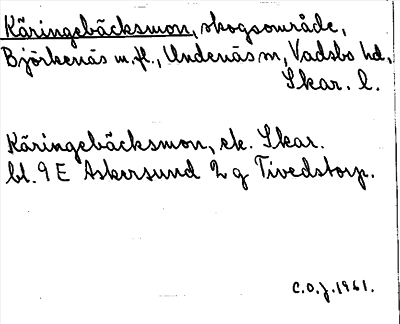 Käringebäcksmon, skogsområde,
Björkenäs m.fl., Undenäs sn, Vadsbo hd,
Skar. l.
Käringebäcksmon, sk. Skar.
bl. 9 E Askersund 2 g Tivedstorp.
C.O.J. 1961.